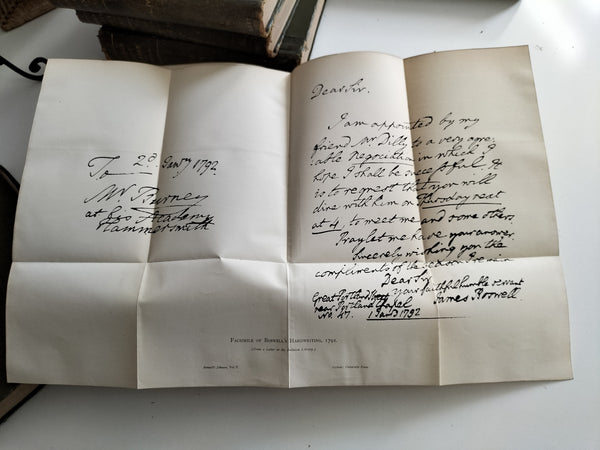 To 2d Jany 1792.
Mr. Burney
at his Academy
Hammersmith
Dear Sir.
I am appointed by my
friend Mr. Dilly to a very agre-
able Negociation in which I
hope I shall be successful. It
is to request that you will
dine with him on Thursday next
at 4, to meet me and some others.
Pray let me have your answer.
Sincerely wishing you the
compliments of the season I remain
Dear Sir
your faithful humble servant
James Boswell.
Great Portland Street
near Portland Chapel
No. 47. 1 Jany 1792
FACSIMILE OF BOSWELL'S HANDWRITING, 1792.
(From a Letter in the Bodleian Library.)
Boswell's Johnson, Vol. V.